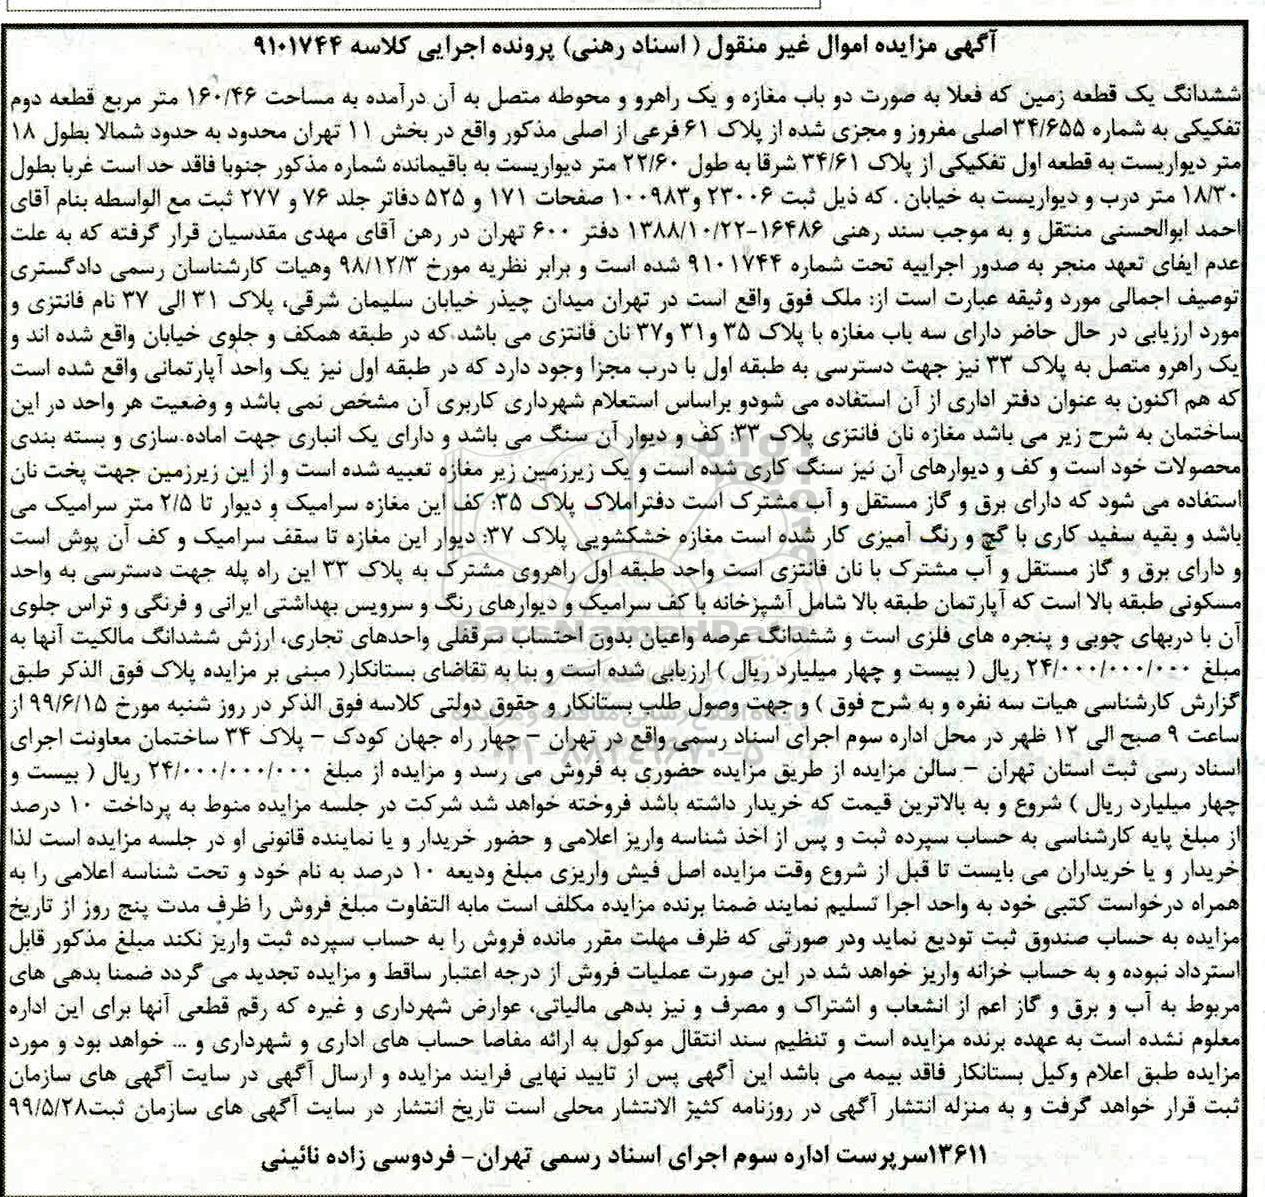 آگهی مزایده اموال غیر منقول ( اسناد رهنی) پرونده اجرایی کلاسه ۹۱۰۱۷۴۴
ششدانگ یک قطعه زمین که فعلا به صورت دو باب مغازه و یک راهرو و محوطه متصل به آن درآمده به مساحت ۱۶۰/۴۶ متر مربع قطعه دوم
تفکیکی به شماره ۳۴/۶۵۵ اصلی مفروز و مجزی شده از پلاک ۶۱ فرعی از اصلی مذکور واقع در بخش ۱۱ تهران محدود به حدود شمالا بطول ۱۸
متر دیواریست به قطعه اول تفکیکی از پلاک ۳۴/۶۱ شرقا به طول ۲۲/۶۰ متر دیواریست به باقیمانده شماره مذکور جنوبا فاقد حد است غربا بطول
۱۸/۳۰ متر درب و دیواریست به خیابان . که ذیل ثبت ۲۳۰۰۶ و۱۰۰۹۸۳ صفحات ۱۷۱ و ۵۲۵ دفاتر جلد ۷۶ و ۲۷۷ ثبت مع الواسطه بنام آقای
احمد ابوالحسنی منتقل و به موجب سند رهنی ۱۶۴۸۶-۱۳۸۸/۱۰/۲۲ دفتر ۶۰۰ تهران در رهن آقای مهدی مقدسیان قرار گرفته که به علت
عدم ایفای تعهد منجر به صدور اجراییه تحت شماره ۹۱۰۱۷۴۴ شده است و برابر نظریه مورخ ۹۸/۱۲/۳ وهیات کارشناسان رسمی دادگستری
توصیف اجمالی مورد وثیقه عبارت است از: ملک فوق واقع است در تهران میدان چیذر خیابان سلیمان شرقی، پلاک ۳۱ الی ۳۷ نام فانتزی و
مورد ارزیابی در حال حاضر دارای سه باب مغازه با پلاک ۳۵ و۳۱ و۳۷ نان فانتزی می باشد که در طبقه همکف و جلوی خیابان واقع شده اند و
یک راهرو متصل به پلاک ۳۳ نیز جهت دسترسی به طبقه اول با درب مجزا وجود دارد که در طبقه اول نیز یک واحد آپارتمانی واقع شده است
که هم اکنون به عنوان دفتر اداری از آن استفاده می شودو براساس استعلام شهرداری کاربری آن مشخص نمی باشد و وضعیت هر واحد در این
ساختمان به شرح زیر می باشد مغازه نان فانتزی پلاک ۳۳: کف و دیوار آن سنگ می باشد و دارای یک انباری جهت اماده سازی و بسته بندی
محصولات خود است و کف و دیوارهای آن نیز سنگ کاری شده است و یک زیرزمین زیر مغازه تعبیه شده است و از این زیرزمین جهت پخت نان
استفاده می شود که دارای برق و گاز مستقل و آب مشترک است دفتراملاک پلاک ۳۵: کف این مغازه سرامیک و دیوار تا ۲/۵ متر سرامیک می
باشد و بقیه سفید کاری با گچ و رنگ آمیزی کار شده است مغازه خشکشویی پلاک ۳۷: دیوار این مغازه تا سقف سرامیک و کف آن پوش است
و دارای برق و گاز مستقل و آب مشترک با نان فانتزی است واحد طبقه اول راهروی مشترک به پلاک ۳۳ این راه پله جهت دسترسی به واحد
مسکونی طبقه بالا است که آپارتمان طبقه بالا شامل آشپزخانه با کف سرامیک و دیوارهای رنگ و سرویس بهداشتی ایرانی و فرنگی و تراس جلوی
آن با دربهای چوبی و پنجره های فلزی است و ششدانگ عرصه واعیان بدون احتساب سرقفلی واحدهای تجاری، ارزش ششدانگ مالکیت آنها به
مبلغ ۲۴/۰۰۰/۰۰۰/۰۰۰ ریال ( بیست و چهار میلیارد ریال ) ارزیابی شده است و بنا به تقاضای بستانکار( مبنی بر مزایده پلاک فوق الذکر طبق
گزارش کارشناسی هیات سه نفره و به شرح فوق ) و جهت وصول طلب بستانکار و حقوق دولتی کلاسه فوق الذکر در روز شنبه مورخ ۹۹/۶/۱۵ از
ساعت ۹ صبح الی ۱۲ ظهر در محل اداره سوم اجرای اسناد رسمی واقع در تهران – چهار راه جهان کودک – پلاک ۳۴ ساختمان معاونت اجرای
اسناد رسی ثبت استان تهران – سالن مزایده از طریق مزایده حضوری به فروش می رسد و مزایده از مبلغ ۲۴/۰۰۰/۰۰۰/۰۰۰ ریال ( بیست و
چهار میلیارد ریال ) شروع و به بالاترین قیمت که خریدار داشته باشد فروخته خواهد شد شرکت در جلسه مزایده منوط به پرداخت ۱۰ درصد
از مبلغ پایه کارشناسی به حساب سپرده ثبت و پس از اخذ شناسه واریز اعلامی و حضور خریدار و یا نماینده قانونی او در جلسه مزایده است لذا
خریدار و یا خریداران می بایست تا قبل از شروع وقت مزایده اصل فیش واریزی مبلغ ودیعه ۱۰ درصد به نام خود و تحت شناسه اعلامی را به
همراه درخواست کتبی خود به واحد اجرا تسلیم نمایند ضمنا برنده مزایده مکلف است مابه التفاوت مبلغ فروش را ظرف مدت پنج روز از تاریخ
مزایده به حساب صندوق ثبت تودیع نماید ودر صورتی که ظرف مهلت مقرر مانده فروش را به حساب سپرده ثبت واریز نکند مبلغ مذکور قابل
استرداد نبوده و به حساب خزانه واریز خواهد شد در این صورت عملیات فروش از درجه اعتبار ساقط و مزایده تجدید می گردد ضمنا بدهی های
مربوط به آب و برق و گاز اعم از انشعاب و اشتراک و مصرف و نیز بدهی مالیاتی، عوارض شهرداری و غیره که رقم قطعی آنها برای این اداره
معلوم نشده است به عهده برنده مزایده است و تنظیم سند انتقال موکول به ارائه مفاصا حساب های اداری و شهرداری و ... خواهد بود و مورد
مزایده طبق اعلام وکیل بستانکار فاقد بیمه می باشد این آگهی پس از تایید نهایی فرایند مزایده و ارسال آگهی در سایت آگهی های سازمان
ثبت قرار خواهد گرفت و به منزله انتشار آگهی در روزنامه کثیر الانتشار محلی است تاریخ انتشار در سایت آگهی های سازمان ثبت۹۹/۵/۲۸
۱۳۶۱۱سرپرست اداره سوم اجرای اسناد رسمی تهران- فردوسی زاده نائینی
ParsNamadData
۰۲۱-۸۸۳۴۹۶۷۰-۵